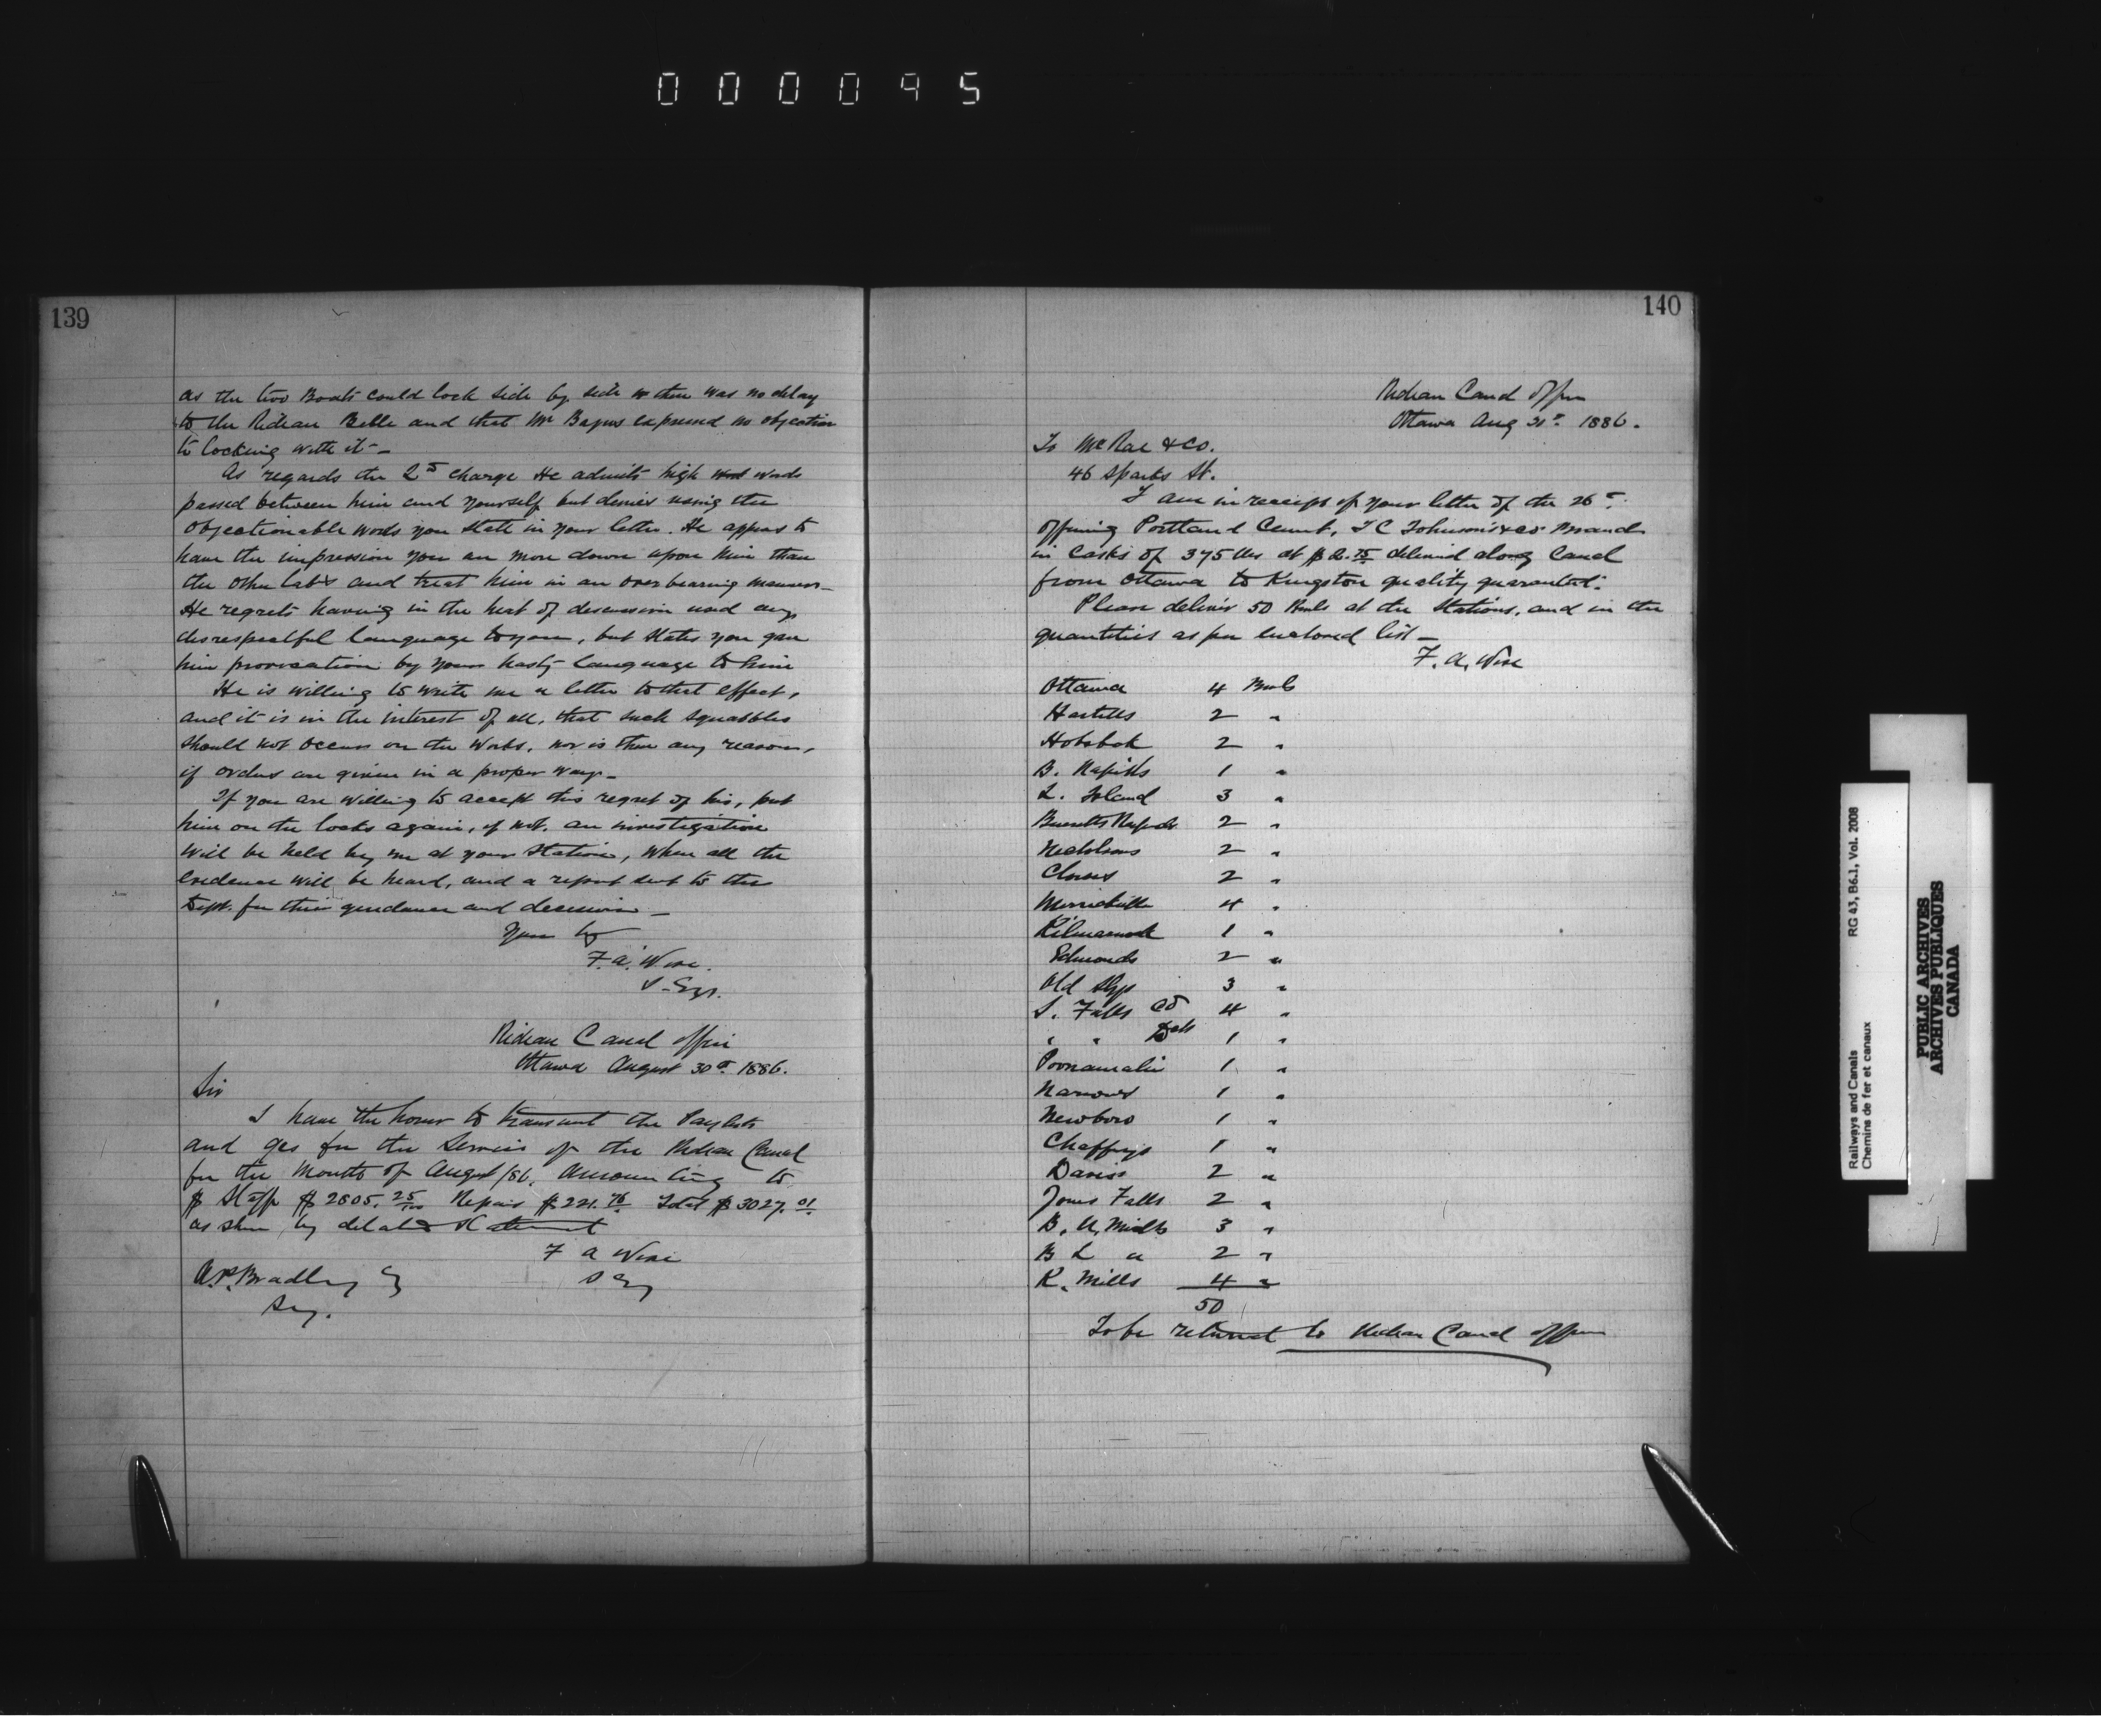 000095
139
as the two Boats could lock side by side & there was no delay
to the Ridean Belle and that Mr Bagus expressed no objection
to locking with it -
As regards the 2nd charge He admits high words
passed between him and yourself but denies using the
objectionable words you state in your letter. He appears to
have the impression you are more down upon him than
the other labrs and treat him in an overbearing manner -
He regrets having in the heat of discussion used any
disrespectful language to you, but states you gave
him provocation by your hasty language to him
He is willing to write me a letter to that effect,
and it is in the interest of all, that such squabbles
should not occur on the Works, nor is there any reason,
if orders are given in a proper way -
If you are willing to accept this regret of his, put
him on the locks again, if not, an investigation
will be held by me at your Station, when all the
evidence will be heard, and a report sent to the
Dept. for their guidance and decision -
Yours &c
F. A. Wise
S. Eng.
Ridean Canal Office
Ottawa August 30th 1886.
Sir
I have the honor to transmit the Paylists
and a/cs for the Service of the Ridean Canal
for the Month of August /86, amounting to
$ Staff $ 2805. 25/100 Repairs $ 221.76 Total $ 3027.01
as shewn by detailed Statement
F A Wise
S Eng
A. P. Bradley Esq
Secy.
140
Ridean Canal Office
Ottawa Aug 31st 1886.
To McRae & Co.
46 Sparks St.
I am in receipt of your letter of the 26th
offering Portland Cement, I C Johnson's & Co Brand
in Casks of 375 lbs at $ 2.75 delivered along Canal
from Ottawa to Kingston quality guaranteed.
Please deliver 50 Brls at the Stations, and in the
quantities as per enclosed list -
F. A. Wise
Ottawa 4 Brls
Hartells 2 "
Hogsback 2 "
B. Rapids 1 "
L. Island 3 "
Burretts Rapids 2 "
Nicholsons 2 "
Clowes 2 "
Merrickville 4 "
Kilmarnock 1 "
Edmonds 2 "
Old Slys 3 "
S. Falls Cd 4 "
" " Deth 1 "
Poonamalie 1 "
Narrows 1 "
Newboro 1 "
Chaffeys 1 "
Davis 2 "
Jones Falls 2 "
B. U. Mills 3 "
B L " 2 "
K. Mills 4 "
50
To be returned to Ridean Canal Office
Railways and Canals
Chemins de fer et canaux
RG 43, B6.1, Vol. 2008
PUBLIC ARCHIVES
ARCHIVES PUBLIQUES
CANADA